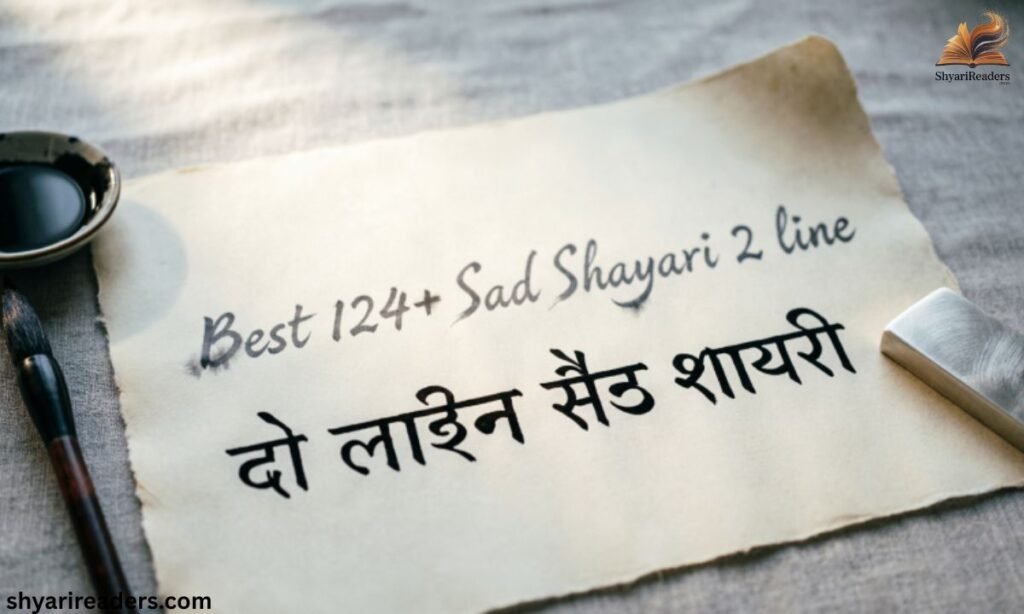 ShyariReaders
Best 124+ Sad Shayari 2 line
दो लाईन सैड शायरी
shyarireaders.com